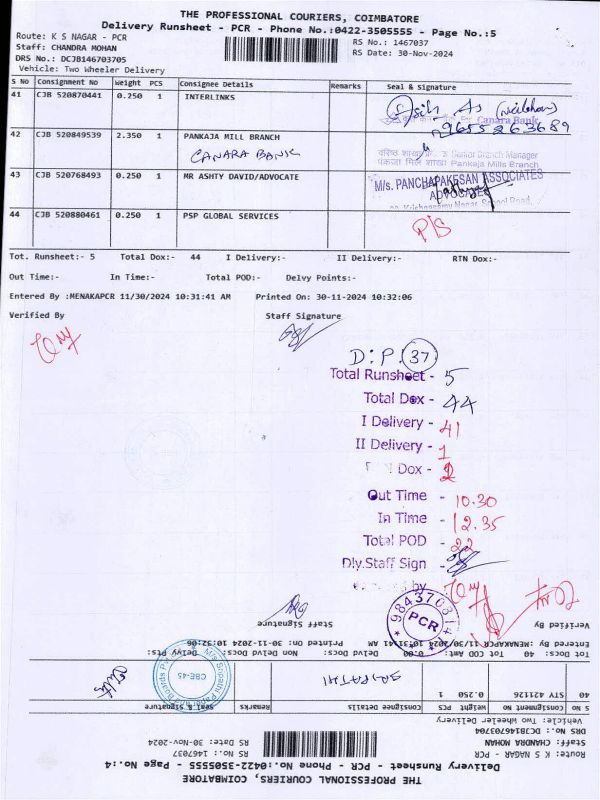 THE PROFESSIONAL COURIERS, COIMBATORE
Delivery Runsheet - PCR - Phone No.:0422-3505555 - Page No.:5
Route: K S NAGAR - PCR
Staff: CHANDRA MOHAN
DRS No.: DCJB146703705
Vehicle: Two Wheeler Delivery
RS No.: 1467037
RS Date: 30-Nov-2024
S No Consignment No Weight PCS Consignee Details Remarks Seal & Signature
41 CJB 520870441 0.250 1 INTERLINKS
9655263689
42 CJB 520849539 2.350 1 PANKAJA MILL BRANCH
CANARA BANK
Canara Bank
Senior Branch Manager
Pankaja Mills Branch
43 CJB 520768493 0.250 1 MR ASHTY DAVID/ADVOCATE
M/s. PANCHAPAKESAN ASSOCIATES
ADVOCATES
Krishnasamy Nagar, School Road,
44 CJB 520880461 0.250 1 PSP GLOBAL SERVICES
P/S
Tot. Runsheet:- 5 Total Dox:- 44 I Delivery:- II Delivery:- RTN Dox:-
Out Time:- In Time:- Total POD:- Delvy Points:-
Entered By :MENAKAPCR 11/30/2024 10:31:41 AM Printed On: 30-11-2024 10:32:06
Verified By Staff Signature
D.P. 37
Total Runsheet - 5
Total Dox - 44
I Delivery - 41
II Delivery - 1
Dox - 2
Out Time - 10.30
In Time - 12.35
Total POD - 22
Dly.Staff Sign -
by
PCR
Verified By Staff Signature
Entered By : MENAKAPCR 11/30/2024 10:31:41 AM Printed On: 30-11-2024 10:32:06
Total Docs: 40 Tot COD Amt: 0.00 Delvd Docs: Non Delvd Docs: Delvy Pts:
40 STV 421126 0.250 1
SRIPATHI
CBE-45
S No Consignment No Weight PCS Consignee Details Remarks Seal & Signature
Vehicle: Two Wheeler Delivery
DRS No.: DCJB146703704
Staff: CHANDRA MOHAN
Route: K S NAGAR - PCR
RS No.: 1467037
RS Date: 30-Nov-2024
Delivery Runsheet - PCR - Phone No.:0422-3505555 - Page No.:4
THE PROFESSIONAL COURIERS, COIMBATORE